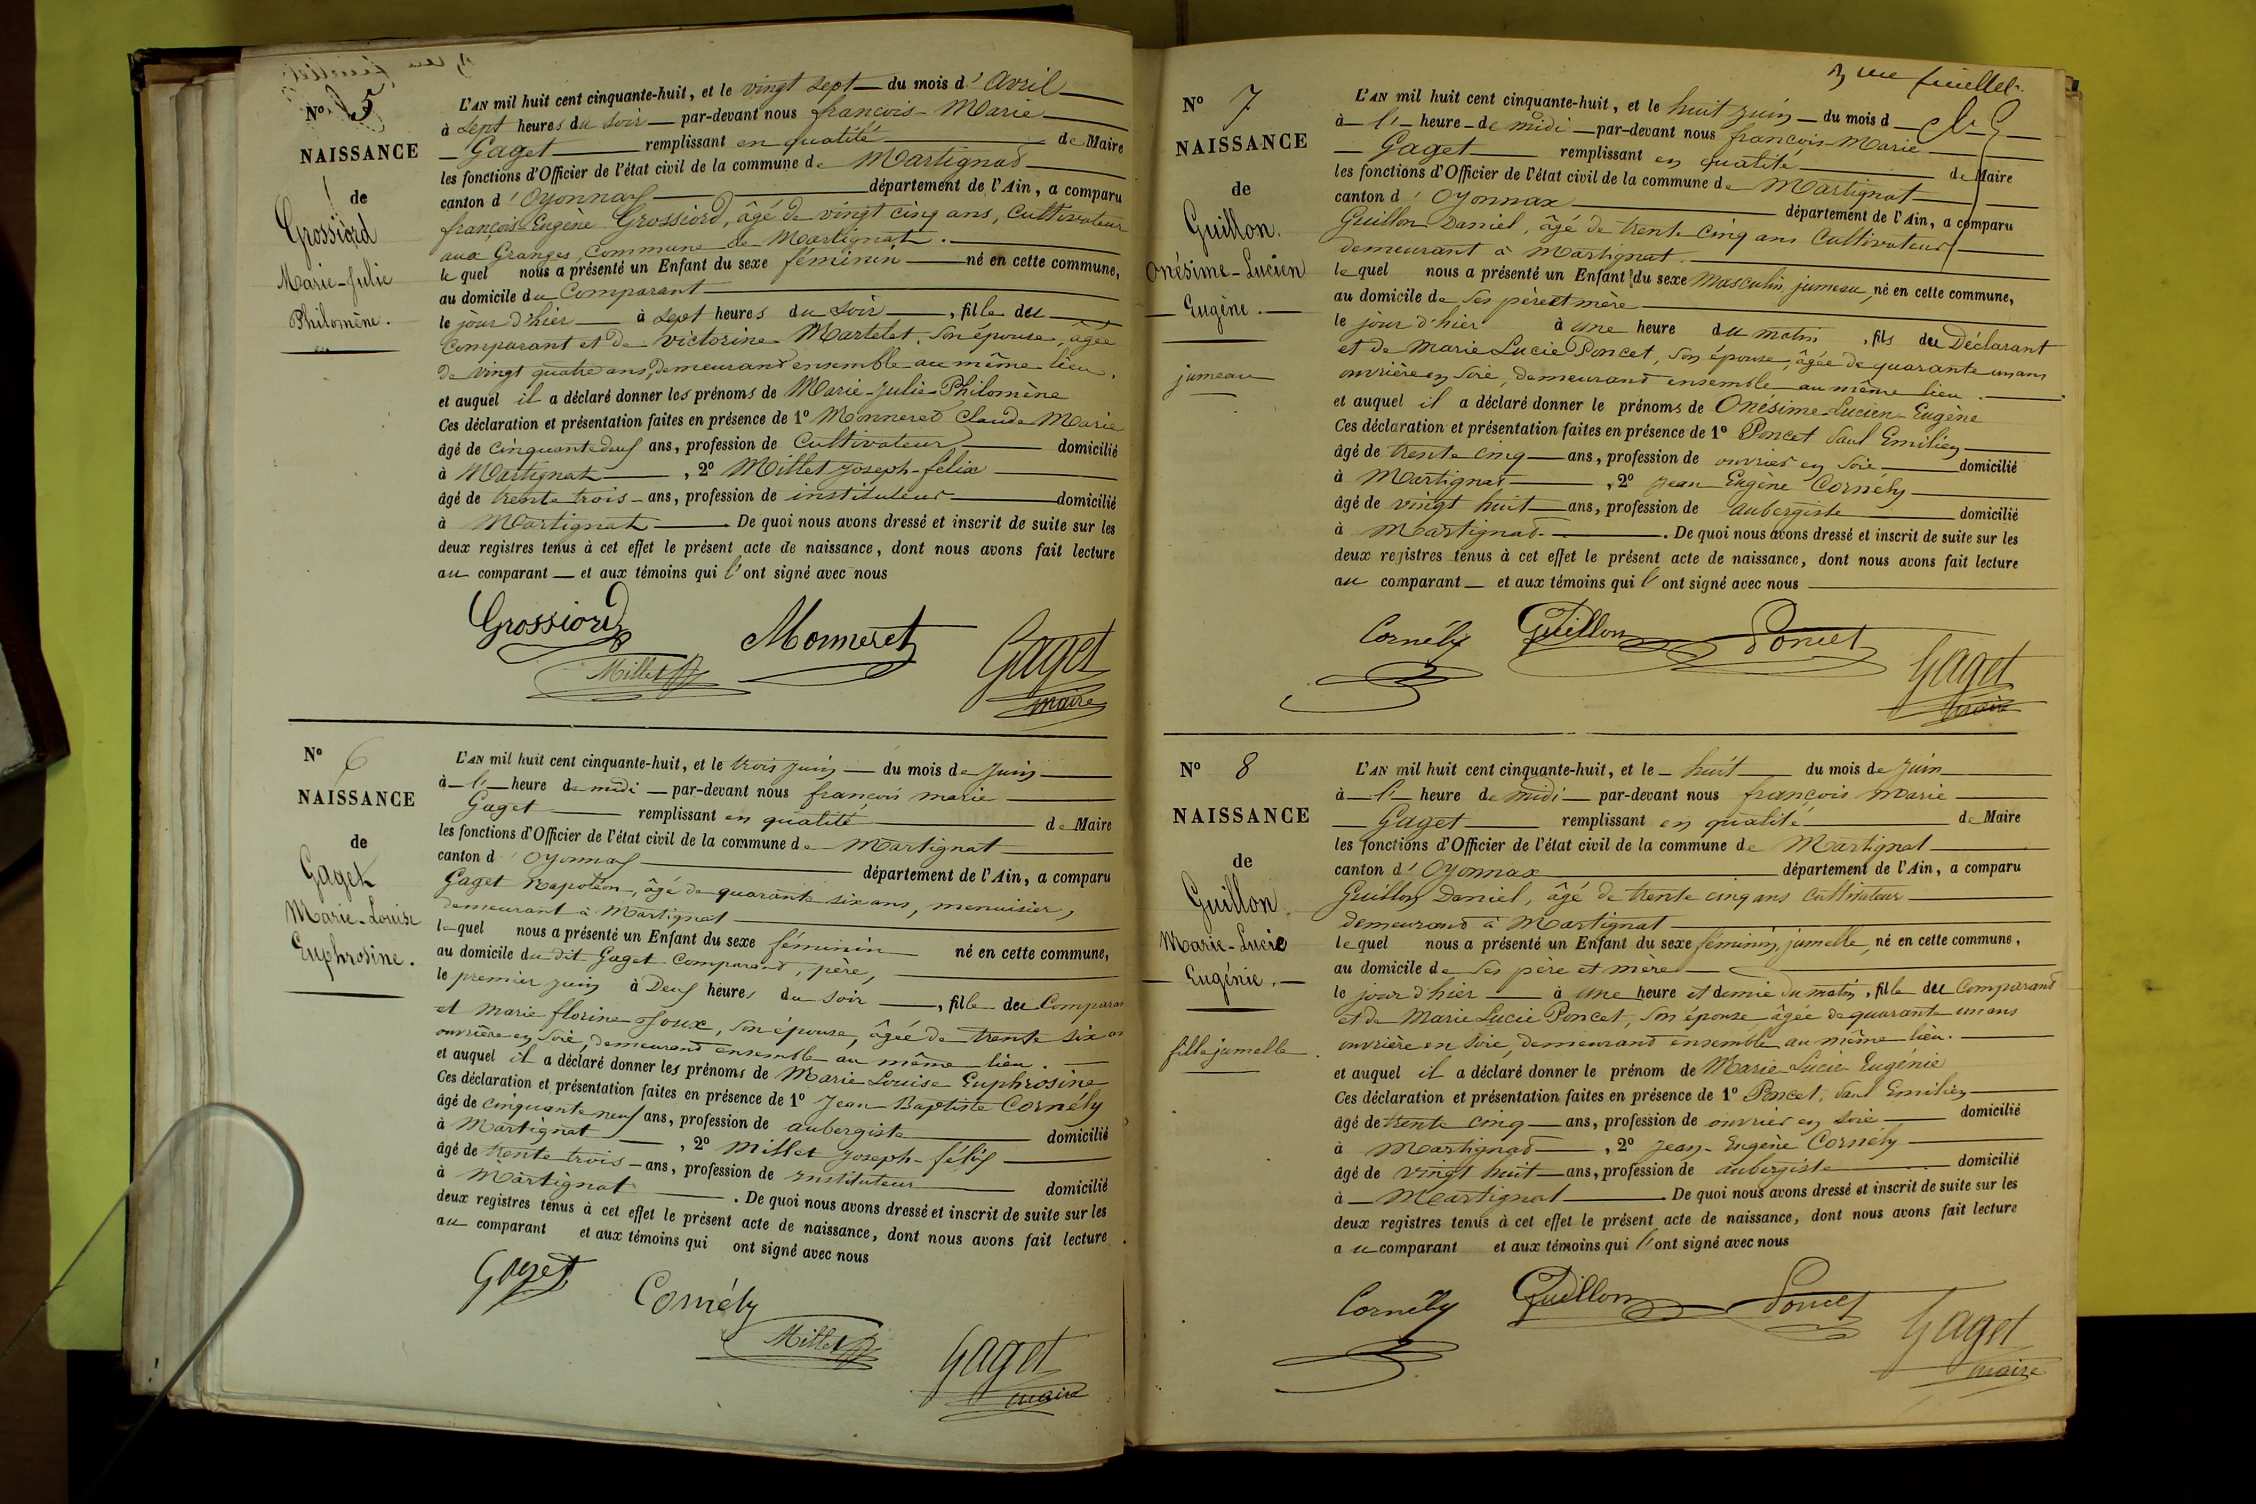 N° 5
NAISSANCE
de
Grossiord
Marie-Julie
Philomène.
L'AN mil huit cent cinquante-huit, et le vingt sept du mois d'avril
à sept heures du soir par-devant nous françois Marie
Gaget remplissant en qualité de Maire
les fonctions d'Officier de l'état civil de la commune de Martignat
canton d'Oyonnax département de l'Ain, a comparu
françois Eugène Grossiord, âgé de vingt cinq ans, cultivateur
aux Granges, commune de Martignat.
le quel nous a présenté un Enfant du sexe féminin né en cette commune,
au domicile du Comparant
le jour d'hier à sept heures du soir, fille du
comparant et de victorine Martelet, son épouse, âgée
de vingt quatre ans, demeurant ensemble au même lieu.
et auquel il a déclaré donner les prénoms de Marie-Julie-Philomène
Ces déclaration et présentation faites en présence de 1° Monneret Claude Marie
âgé de cinquante deux ans, profession de cultivateur domicilié
à Martignat, 2° Millet Joseph-felix
âgé de trente trois ans, profession de instituteur domicilié
à Martignat. De quoi nous avons dressé et inscrit de suite sur les
deux registres tenus à cet effet le présent acte de naissance, dont nous avons fait lecture
au comparant et aux témoins qui l'ont signé avec nous
Grossiord Monneret Gaget
Millet maire
N° 6
NAISSANCE
de
Gaget
Marie-Louise
Euphrosine.
L'AN mil huit cent cinquante-huit, et le trois juin du mois de juin
à l' heure de midi par-devant nous françois marie
Gaget remplissant en qualité de Maire
les fonctions d'Officier de l'état civil de la commune de Martignat
canton d'Oyonnax département de l'Ain, a comparu
Gaget Napoléon, âgé de quarante six ans, menuisier,
demeurant à Martignat
le quel nous a présenté un Enfant du sexe féminin né en cette commune,
au domicile du dit Gaget comparant, père,
le premier juin à Deux heures du soir, fille du Comparant
et Marie florine Joux, son épouse, âgée de trente six
ouvrière en soie, demeurant ensemble au même lieu.
et auquel il a déclaré donner les prénoms de Marie Louise Euphrosine
Ces déclaration et présentation faites en présence de 1° Jean Baptiste Cornély
âgé de cinquante neuf ans, profession de aubergiste domicilié
à Martignat, 2° Millet Joseph-félix
âgé de trente trois ans, profession de instituteur domicilié
à Martignat. De quoi nous avons dressé et inscrit de suite sur les
deux registres tenus à cet effet le présent acte de naissance, dont nous avons fait lecture
au comparant et aux témoins qui ont signé avec nous
Gaget Cornély
Millet Gaget
maire
N° 7
NAISSANCE
de
Guillon.
Onésime-Lucien
Eugène.
jumeau
feuillet.
L'AN mil huit cent cinquante-huit, et le huit juin du mois d
à l' heure de midi par-devant nous françois-Marie
Gaget remplissant en qualité de Maire
les fonctions d'Officier de l'état civil de la commune de Martignat
canton d'Oyonnax département de l'Ain, a comparu
Guillon Daniel, âgé de trente cinq ans cultivateur
demeurant à Martignat.
le quel nous a présenté un Enfant du sexe Masculin jumeau, né en cette commune,
au domicile de ses père et mère
le jour d'hier à une heure du matin, fils du Déclarant
et de Marie Lucie Poncet, son épouse, âgée de quarante un ans
ouvrière en soie, demeurant ensemble au même lieu.
et auquel il a déclaré donner le prénoms de Onésime-Lucien-Eugène
Ces déclaration et présentation faites en présence de 1° Poncet Paul Emilien
âgé de trente cinq ans, profession de ouvrier en soie domicilié
à Martignat, 2° Jean Eugène Cornély
âgé de vingt huit ans, profession de aubergiste domicilié
à Martignat. De quoi nous avons dressé et inscrit de suite sur les
deux registres tenus à cet effet le présent acte de naissance, dont nous avons fait lecture
au comparant et aux témoins qui l'ont signé avec nous
Cornély Guillon Poncet
Gaget
maire
N° 8
NAISSANCE
de
Guillon
Marie-Lucie
Eugénie.
fille jumelle.
L'AN mil huit cent cinquante-huit, et le huit du mois de juin
à l' heure de midi par-devant nous françois Marie
Gaget remplissant en qualité de Maire
les fonctions d'Officier de l'état civil de la commune de Martignat
canton d'Oyonnax département de l'Ain, a comparu
Guillon Daniel, âgé de trente cinq ans cultivateur
demeurant à Martignat
le quel nous a présenté un Enfant du sexe féminin, jumelle, né en cette commune,
au domicile de ses père et mère
le jour d'hier à une heure et demie du matin, fille du comparant
et de Marie Lucie Poncet, son épouse âgée de quarante un ans
ouvrière en soie, demeurant ensemble au même lieu.
et auquel il a déclaré donner le prénom de Marie Lucie Eugénie
Ces déclaration et présentation faites en présence de 1° Poncet, Paul Emilien
âgé de trente cinq ans, profession de ouvrier en soie domicilié
à Martignat, 2° Jean-Eugène Cornély
âgé de vingt huit ans, profession de aubergiste domicilié
à Martignat. De quoi nous avons dressé et inscrit de suite sur les
deux registres tenus à cet effet le présent acte de naissance, dont nous avons fait lecture
au comparant et aux témoins qui l'ont signé avec nous
Cornély Guillon Poncet
Gaget
maire